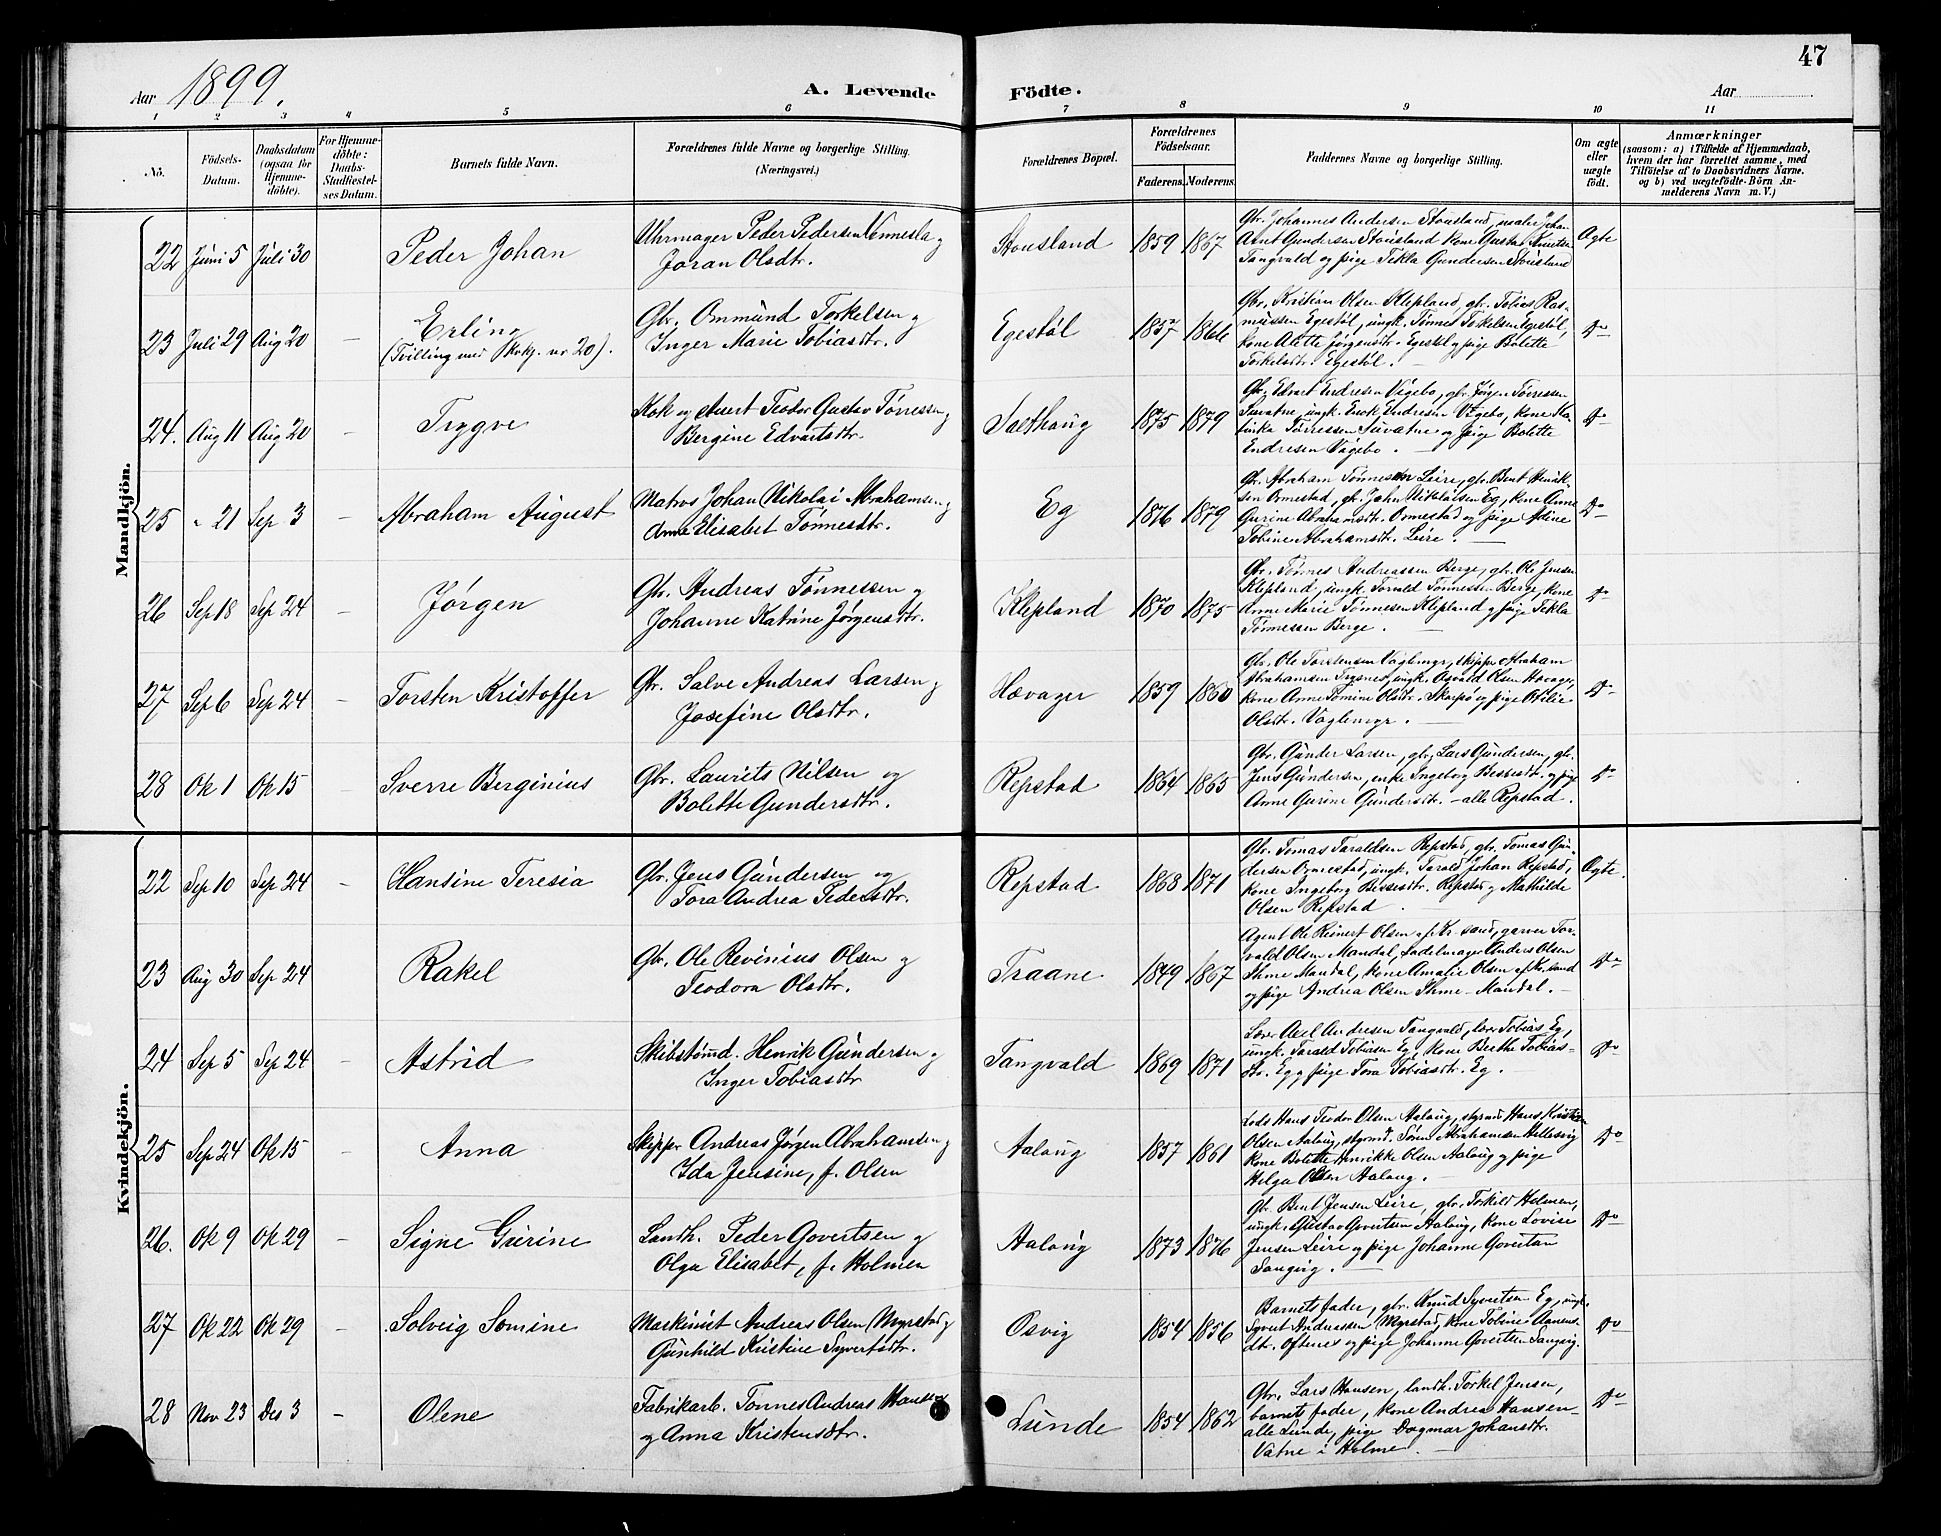 47
Aar 1899.
A. Levende Födte.
Aar
1 2 3 4 5 6 7 8 9 10 11
No.
Födsels-Datum.
Daabsdatum (ogsaa for Hjemme-döbte).
For Hjemme-döbte: Daabs-Stadfæstelses Datum.
Barnets fulde Navn.
Forældrenes fulde Navne og borgerlige Stilling. (Næringsvei.)
Forældrenes Bopæl.
Forældrenes Födselsaar.
Faderens. Moderens.
Faddernes Navne og borgerlig Stilling.
Om ægte eller uægte født.
Anmærkninger
(saasom: a) i Tilfælde af Hjemmedaab, hvem der har forrettet samme, med Tilföielse af to Daabsvidners Navne. og b) ved uægtefödte Börn Anmelderens Navn m. V.)
Mandkjön.
22 Juni 5 Juli 30
Peder Johan
Uhrmager Peder Pedersen Vennesla og
Joran Olsdtr.
Stousland 1859 1867
Gbr. Johannes Andersen Stousland, maler Johan
Arnt Gundersen Stousland kone Gusta Knutsen
Tangvald og pige Tekla Gundersen Stousland
Ægte
23 Juli 29 Aug 20 –
Erling
(Tvilling med Kvkj. nr 20).
Gbr. Ommund Torkelsen og
Inger Marie Tobiasdtr.
Egestøl 1857 1866
Gbr. Kristian Olsen Klepland, gbr. Tobias Ras-
mussen Egestøl, ungk. Tønnes Torkelsen Egestøl,
kone Alette Jørgensdtr. Egestøl og pige Bolette
Torkelsdtr. Egestøl.
Do
24. Aug 11 Aug 20 –
Trygve
Kok og Auert Teodor Gustav Tørressen og
Bergine Edvartsdtr.
Salthaug 1875 1879
Gbr. Edvart Endresen Vigebo, gbr. Jørgen Tørressen
Suvatne, ungk. Enok Endresen Vigebo, kone Ka-
tinka Tørressen Suvatne og pige Bolette
Endresen Vigebo.
Do
25 " 21 Sep 3 –
Abraham August
Matros Johan Nikolai Abrahamsen og
Anne Elisabet Tønnesdtr.
Eg 1876 1879
Gbr. Abraham Tønnessen Leire, gbr. Bent Henrik-
sen Ormestad, gk. John Niklaisen Eg, kone Anne
Gurine Abrahamsdtr. Ormestad og pige Adine
Tobine Abrahamsdtr. Leire.
Do
26 Sep 18 Sep 24 –
Jørgen
Gbr. Andreas Tønnessen og
Johanne Katrine Jørgensdtr.
Klepland 1870 1875
Gbr. Tønnes Andreassen Berge, gbr. Ole Jensen
Klepland, ungk. Torvald Tønnessen Berge, kone
Anne Marie Tønnessen Klepland og pige Tekla
Tønnessen Berge.
Do
27 Sep 6 Sep 24 –
Torsten Kristoffer
Gbr. Salve Andreas Larsen og
Josefine Olsdtr.
Hævager 1859 1860
Gbr. Ole Torstensen Vaglemyr, skipper Abraham
Abrahamsen Trysnes, ungk. Osvald Olsen Havager,
kone Anne Tomine Olsdtr. Skarpø og pige Otilie
Olsdtr. Vaglemyr.
Do
28 Ok 1 Ok 15 –
Sverre Berginius
Gbr. Laurits Nilsen og
Bolette Gundersdtr.
Repstad 1864 1865
Gbr. Gunder Larsen, gbr. Lars Gundersen, gbr.
Jens Gundersen, enke Ingeborg Besbesdtr. og pige
Anne Gurine Gundersdtr. – alle Repstad.
Do
Kvindekjön.
22 Sep 10 Sep 24 –
Hansine Teresia
Gbr. Jens Gundersen og
Tora Andrea Pedersdtr.
Repstad 1868 1871
Gbr. Tomas Taraldsen Repstad, gbr. Tomas Gun-
dersen Ormestad, ungk. Tarald Johan Repstad,
kone Ingeborg Bessesdtr. Repstad og Mathilde
Olsen Repstad.
Ægte.
23 Aug 30 Sep 24 –
Rakel
Gbr. Ole Revinius Olsen og
Teodora Olsdtr.
Traane 1849 1867
Agent Ole Reinert Olsen af Kr.sand, garver Tor-
vald Olsen Mandal, Sadelmager Anders Olsen
Ihme Mandal, kone Amalie Olsen af Kr.sand
og pige Andrea Olsen Ihme – Mandal.
Do
24 Sep 5 Sep 24 –
Astrid
Skibstømd. Henrik Gundersen og
Inger Tobiasdtr
Tangvald 1869 1871
Lærer Axel Andresen Tangvald, lærer Tobias Eg,
ungk. Tarald Tobiasen Eg, kone Berthe Tobias-
dtr. Eg og pige Tora Tobiasdtr. Eg.
Do
25 Sep 24 Ok 15 –
Anna
Skipper Andreas Jørgen Abrahamsen og
Ida Jensine, f. Olsen
Aalaug 1857 1861
Lods Hans Teodor Olsen Aalaug, styrmd Hans Kristian
Olsen Aalaug, styrmd. Søren Abrahamsen Hillesvig
kone Bolette Henrikke Olsen Aalaug og pige
Helga Olsen Aalaug.
Do
26. Ok 9 Ok 29 –
Signe Gurine
Landh. Peder Govertsen og
Olga Elisabet, f. Holmen
Aalaug 1873 1876
Gbr. Bent Jensen Leire, gbr. Torkild Holmen,
ungk. Gustav Govertsen Aalaug, kone Lovise
Jensen Leire og pige Johanne Govertsen
Sangvig.
Do
27 Ok 22 Ok 29 –
Solveig Somine
Maskinist Andreas Olsen Myrstad og
Gunhild Kristine Syvertsdtr.
Osvig 1854 1856
Barnets fader, gbr. Knud Syvertsen Eg, ungk.
Syvert Andreassen Myrstad, kone Tobine Aanens-
dtr. Oftenes og pige Johanne Govertsen Sangvig.
Do
28 Nov 23 Des 3 –
Olene
Fabrikarb. Tønnes Andreas Hansen
og Anna Kristensdtr.
Lunde 1854 1862
Gbr. Lars Hansen, landh. Torkel Jensen,
barnets fader, kone Andrea Hansen –
alle Lunde, pige Dagmar Johansdtr.
Vatne i Holme.
Do